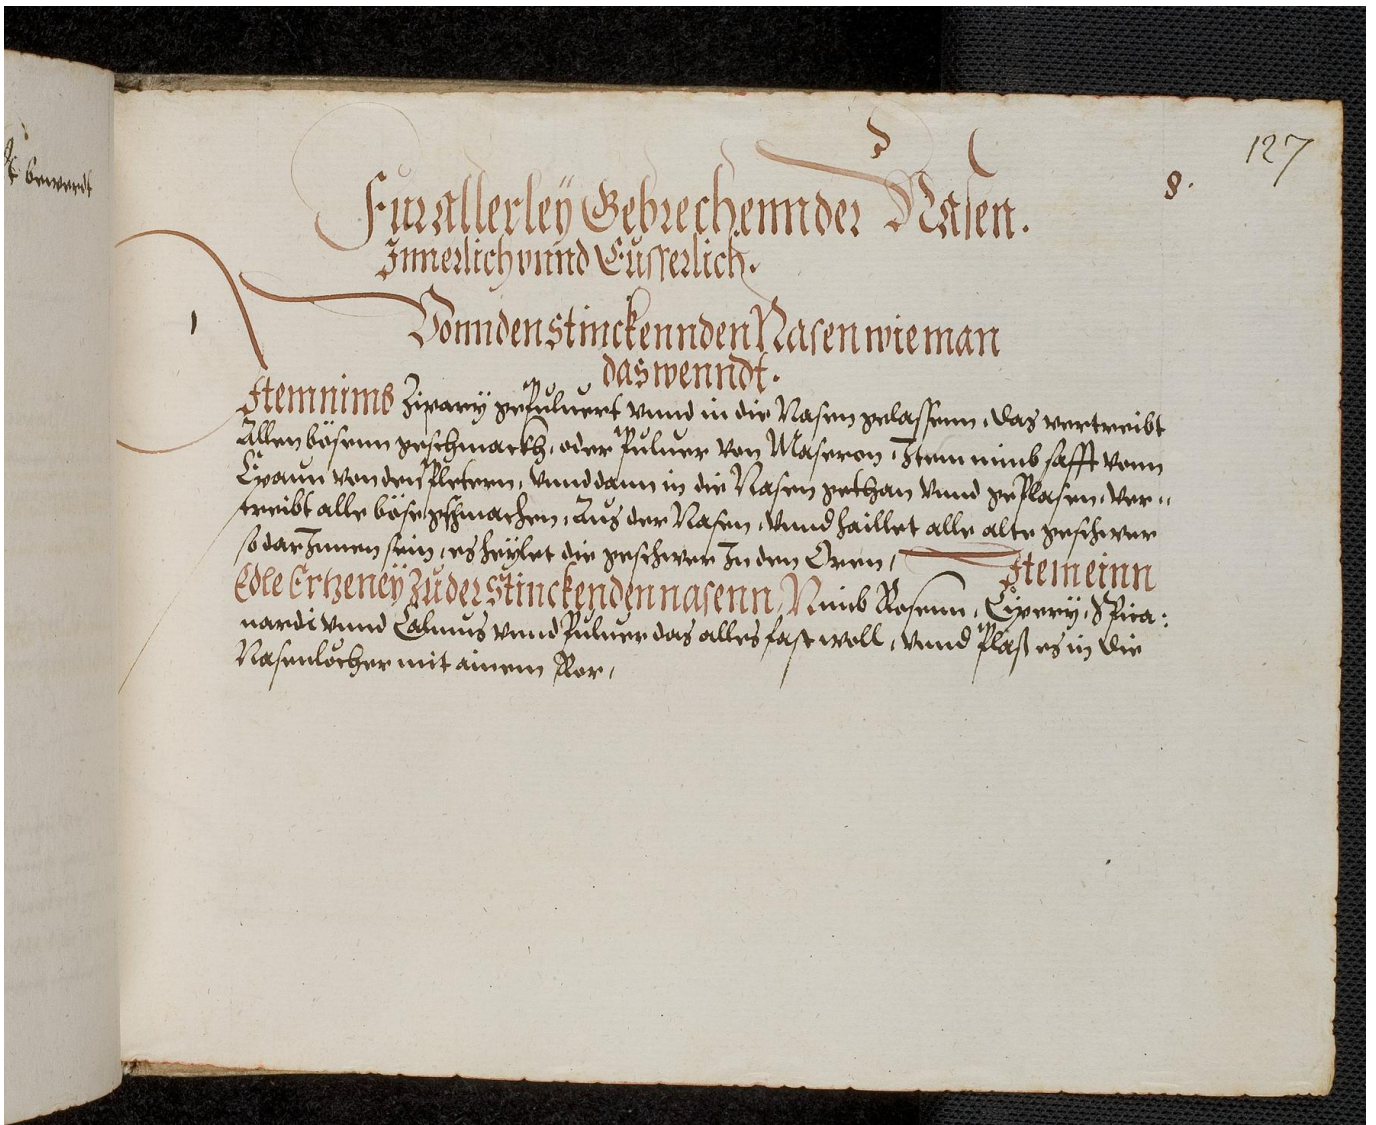 127
8.
bewerdt
Fur allerley Gebrechenn der Nasen.
Innerlich vnnd Eusserlich.
1
Vonn den stinckennden Nasen wie man
das wenndt.
Item nimb Zipary gepuluert vnnd in die Nasen gelassenn, das vertreibt
Allen bösenn geschmackh, oder Puluer von Maseron, Item nimb safft vonn
von den Pletern, vnnd dann in die Nasen gethan vnnd geplasen, ver„
treibt alle böse gschmachen, Aus der Nasen, vnnd haillet alle alte geschwer
so darInnen sein, es heylet die geschwer In den Oren, Item einn
Edle Ertzeneÿ Zu der stinckenden nasenn, Nimb Rosenn, Cipery, Spica:
nardi vnnd Calmus vnnd Puluer das alles fast woll, vnnd Plass es in die
Nasenlöcher mit ainem Ror,